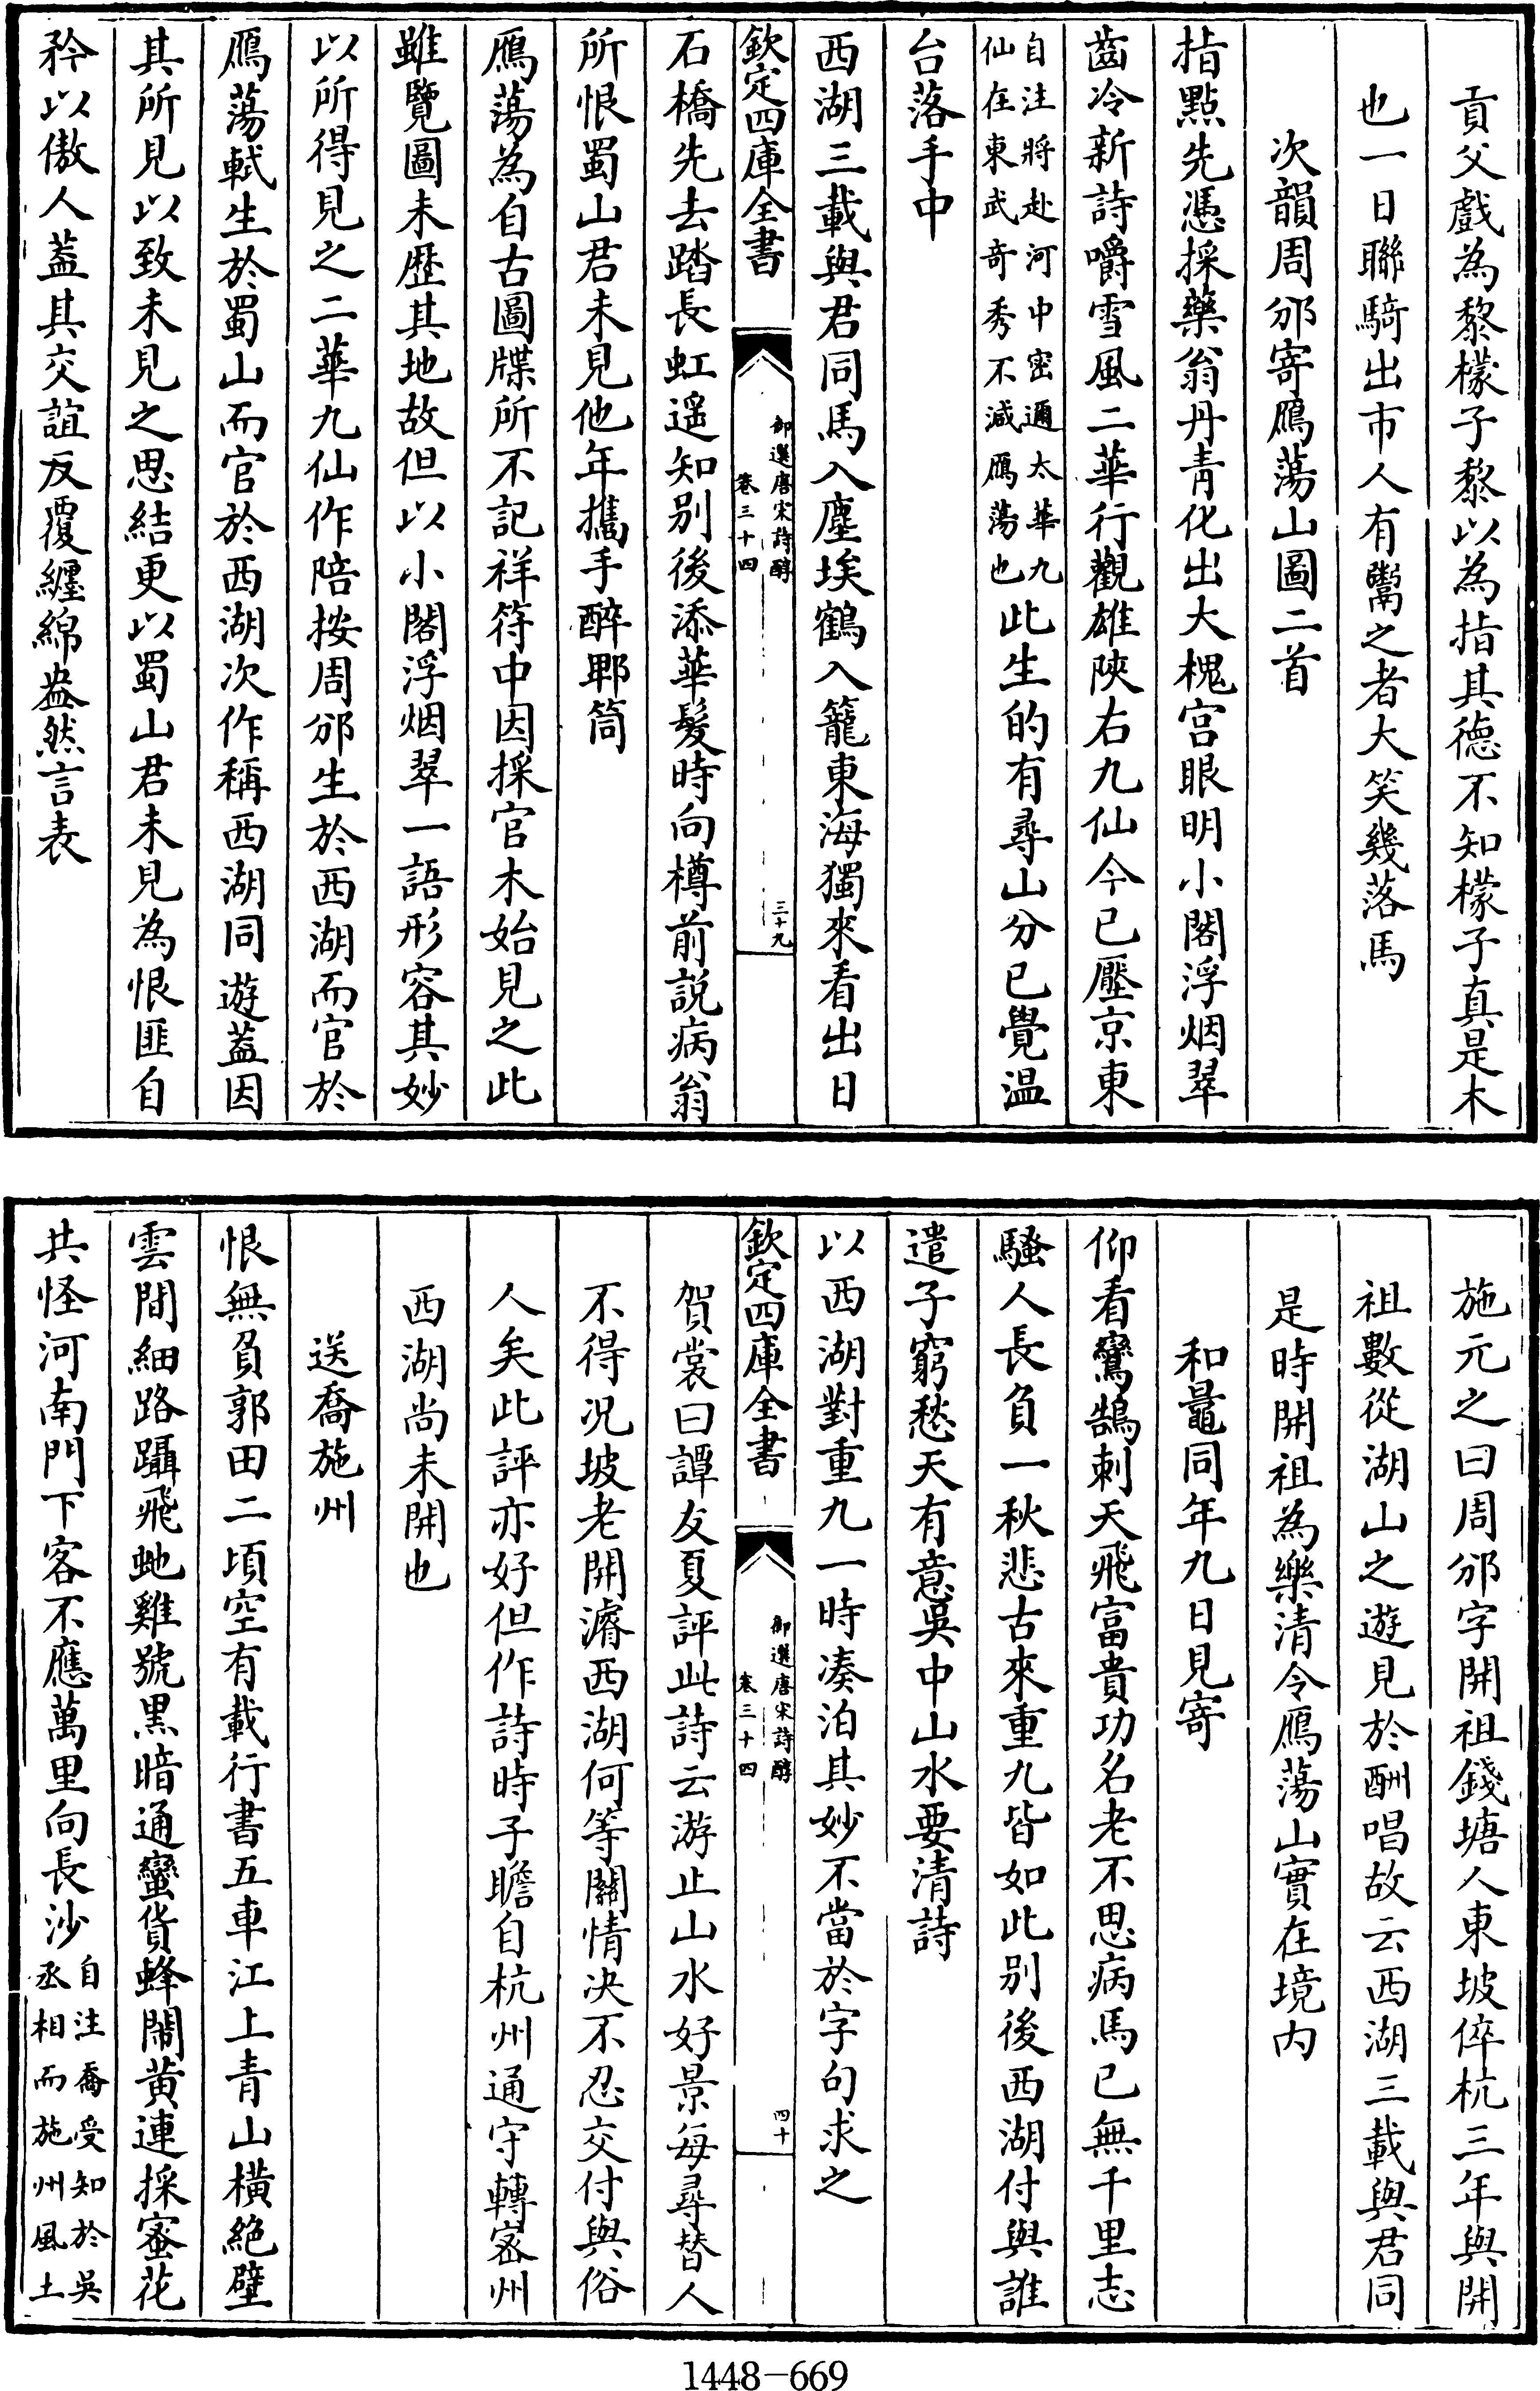 貢父戲為黎檬子黎以為指其德不知檬子真是木
也一日聯騎出市人有鬻之者大笑幾落馬
次韻周邠寄鴈蕩山圖二首
指點先憑採藥翁丹青化出大槐宫眼明小閣浮烟翠
齒冷新詩嚼雪風二華行觀雄陜右九仙今已壓京東
自注將赴河中密邇太華九
仙在東武奇秀不減鴈蕩也
此生的有尋山分已覺温
台落手中
西湖三載與君同馬入塵埃鶴入籠東海獨來看出日
欽定四庫全書
御選唐宋詩醇
卷三十四
三十九
石橋先去踏長虹遥知别後添華髪時向樽前説病翁
所恨蜀山君未見他年攜手醉郫筒
鴈蕩為自古圖牒所不記祥符中因採官木始見之此
雖覽圖未歴其地故但以小閣浮烟翠一語形容其妙
以所得見之二華九仙作陪按周邠生於西湖而官於
鴈蕩軾生於蜀山而官於西湖次作稱西湖同遊葢因
其所見以致未見之思結更以蜀山君未見為恨匪自
矜以傲人葢其交誼反覆纒綿盎然言表
施元之曰周邠字開祖錢塘人東坡倅杭三年與開
祖數從湖山之遊見於酬唱故云西湖三載與君同
是時開祖為樂清令鴈蕩山實在境内
和鼂同年九日見寄
仰看鸞鵠刺天飛富貴功名老不思病馬已無千里志
騷人長負一秋悲古來重九皆如此别後西湖付與誰
遣子窮愁天有意吳中山水要清詩
以西湖對重九一時凑泊其妙不當於字句求之
欽定四庫全書
御選唐宋詩醇
卷三十四
四十
賀裳曰譚友夏評此詩云游止山水好景每尋替人
不得况坡老開濬西湖何等關情决不忍交付與俗
人矣此評亦好但作詩時子瞻自杭州通守轉密州
西湖尚未開也
送喬施州
恨無負郭田二頃空有載行書五車江上青山横絶壁
雲間細路躡飛虵雞號黒暗通蠻貨蜂鬧黄連採蜜花
共怪河南門下客不應萬里向長沙
自注喬受知於吳
丞相而施州風土
1448-669